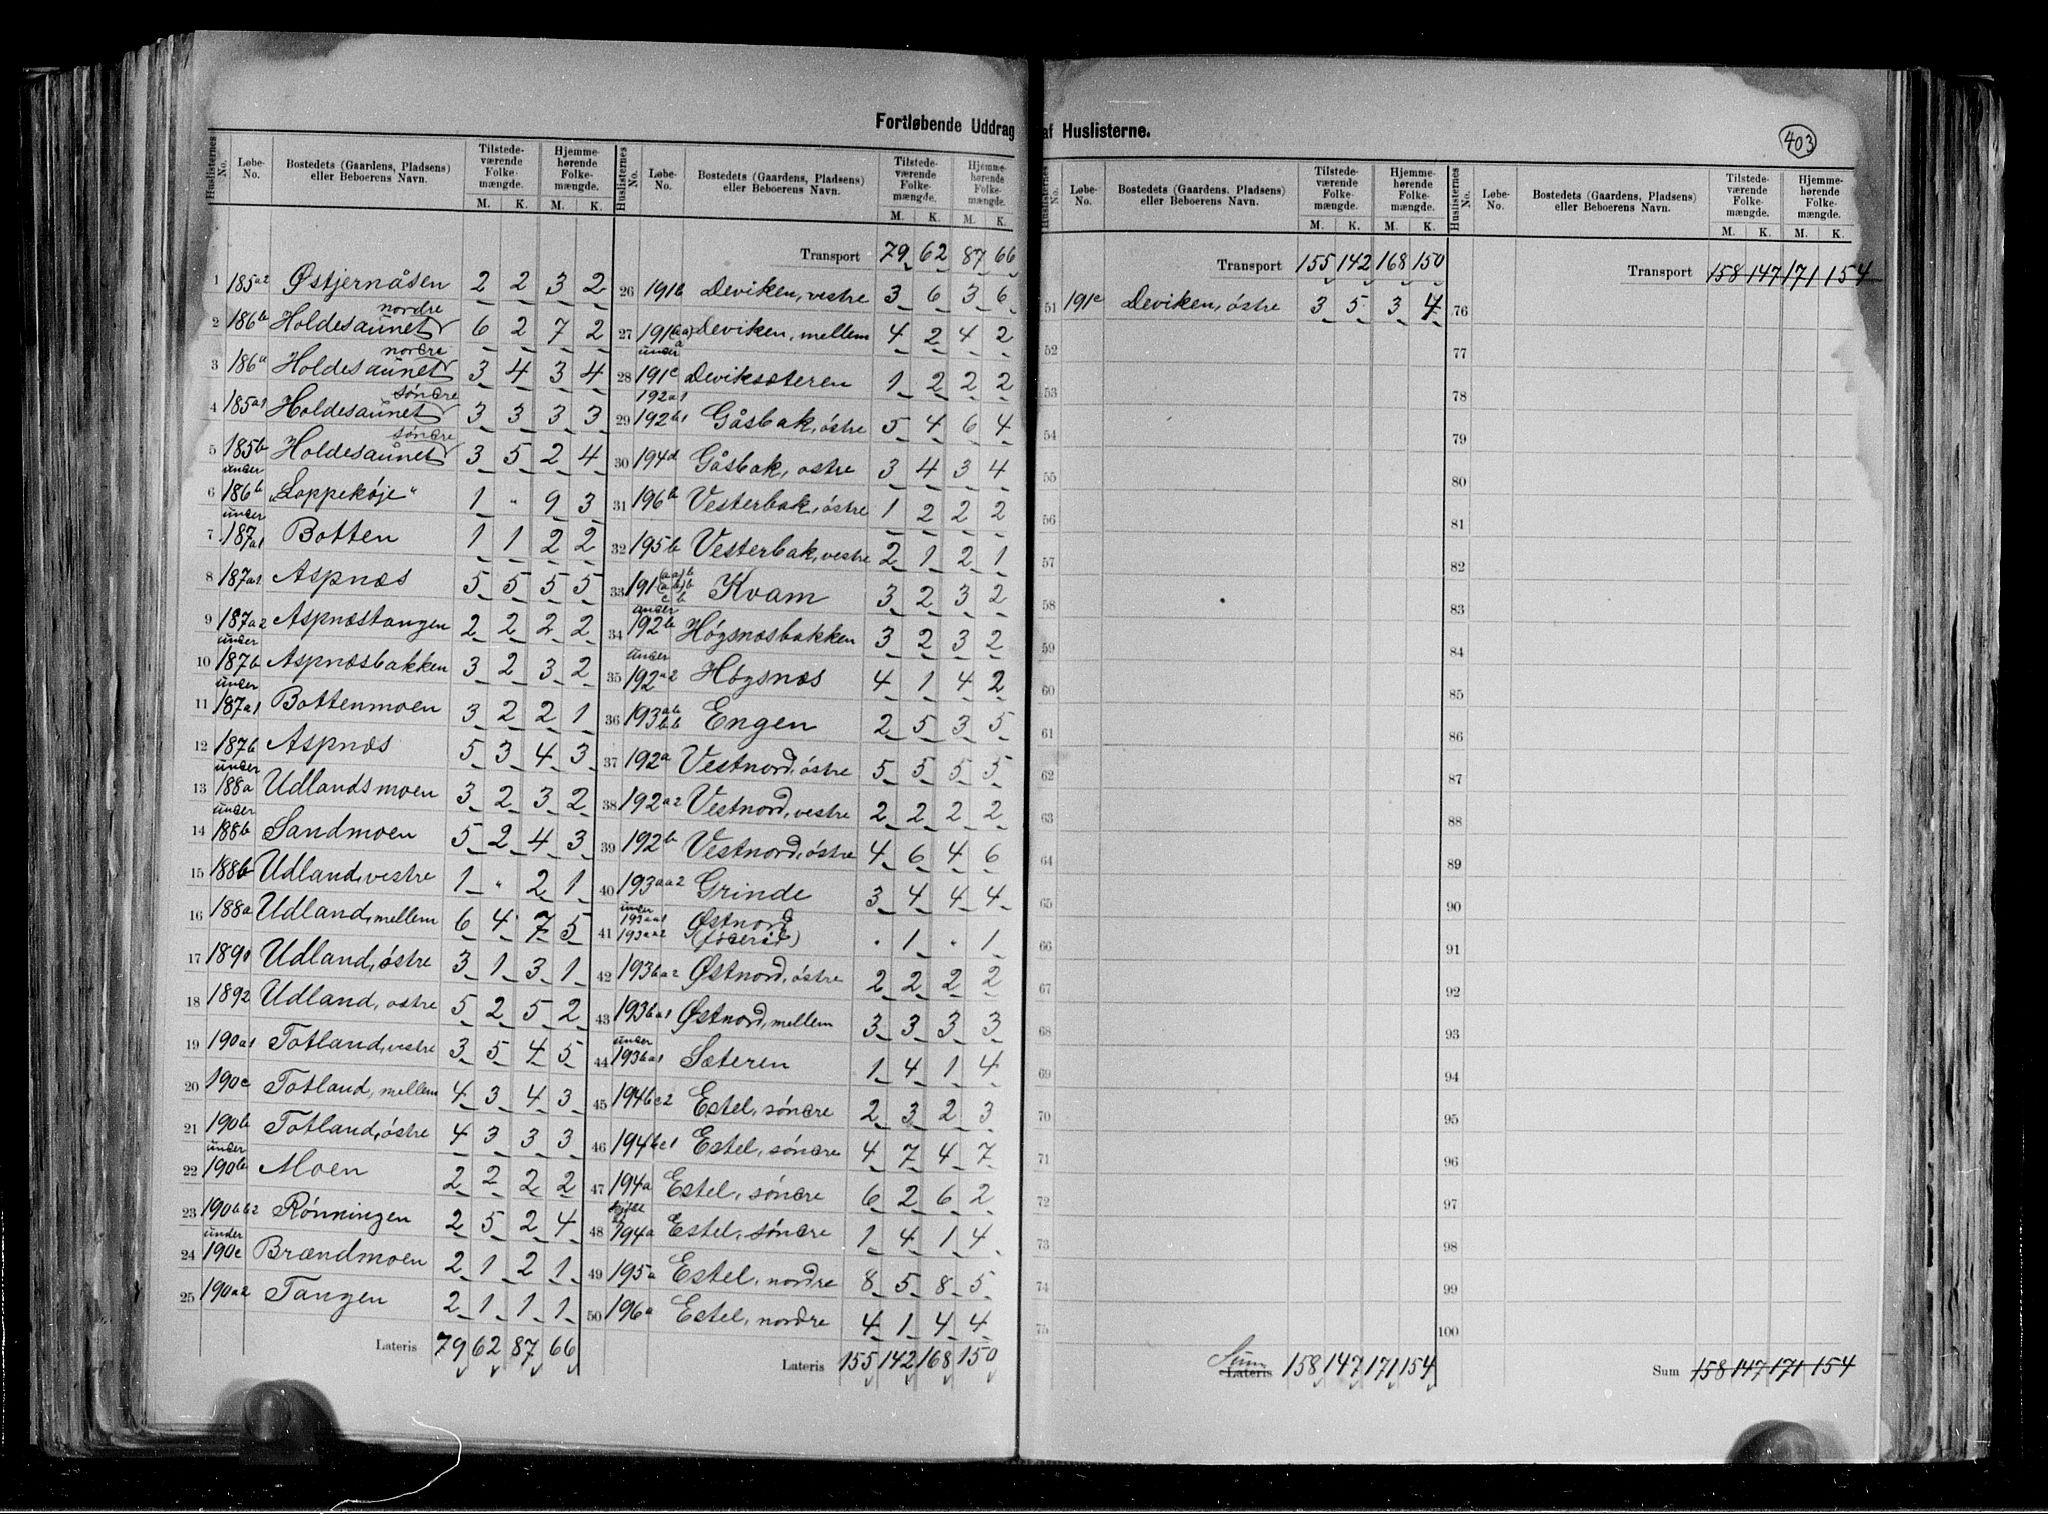 Fortløbende Uddrag af Huslisterne.
403
Huslisternes No. Løbe-No. Bostedets (Gaardens, Pladsens) eller Beboerens Navn. Tilstede-værende Folke-mængde. M. K. Hjemme-hørende Folke-mængde. M. K.
1 185a2 Østjernåsen 2 2 3 2
2 186b Holdesaunet nordre 6 2 7 2
3 186a Holdesaunet nordre 3 4 3 4
4 185a1 Holdesaunet søndre 3 3 3 3
5 185b Holdesaunet søndre 3 5 2 4
6 under 186b "Loppekøje" 1 " 9 3
7 under 187a1 Botten 1 1 2 2
8 187a1 Aspnæs 5 5 5 5
9 187a2 Aspnæstangen 2 2 2 2
10 under 187b Aspnæsbakken 3 2 3 2
11 under 187a1 Bottenmoen 3 2 2 1
12 187b Aspnæs 5 3 4 3
13 under 188a Udlandsmoen 3 2 3 2
14 under 188b Sandmoen 5 2 4 3
15 188b Udland, vestre 1 " 2 1
16 188a Udland, mellem 6 4 7 5
17 1891 Udland, østre 3 1 3 1
18 1892 Udland, østre 5 2 5 2
19 190a1 Totland, vestre 3 5 4 5
20 190c Totland, mellem 4 3 4 3
21 190b Totland, østre 4 3 3 3
22 under 190b Moen 2 2 2 2
23 190bb2 Rønningen 2 5 2 4
24 under 190c Brændmoen 2 1 2 1
25 190a2 Tangen 2 1 1 1
Lateris 79 62 87 66
Huslisternes No. Løbe-No. Bostedets (Gaardens, Pladsens) eller Beboerens Navn. Tilstede-værende Folke-mængde. M. K. Hjemme-hørende Folke-mængde. M. K.
Transport 79 62 87 66
26 191b Deviken, vestre 3 6 3 6
27 Deviken, mellem 4 2 4 2
28 under 191c Deviksæteren 1 2 2 2
29 192a1 192b1 Gåsbak, østre 5 4 6 4
30 194d Gåsbak, østre 3 4 3 4
31 196b Vesterbak, østre 1 2 2 2
32 195b Vesterbak, vestre 2 1 2 1
33 Kvam 3 2 3 2
34 under 192b Høgsnæsbakken 3 2 3 2
35 under 192a2 Høgsnæs 4 1 4 2
36 193ab bb Engen 2 5 3 5
37 192a Vestnord, østre 5 5 5 5
38 192a2 Vestnord, vestre 2 2 2 2
39 192b Vestnord, østre 4 6 4 6
40 193aa2 Grinde 3 4 4 4
41 under 193aa1 193aa2 Østnord (føderåd) " 1 " 1
42 193ba2 Østnord, østre 2 2 2 2
43 193ba1 Østnord, mellem 3 3 3 3
44 under 193ba1 Sæteren 1 4 1 4
45 194bc2 Estel, søndre 2 3 2 3
46 194bc1 Estel, søndre 4 7 4 7
47 194a Estel, søndre 6 2 6 2
48 194a Estel, søndre 1 4 1 4
49 195a Estel, nordre 8 5 8 5
50 196a Estel, nordre 4 1 4 4
Lateris 155 142 168 150
Huslisternes No. Løbe-No. Bostedets (Gaardens, Pladsens) eller Beboerens Navn. Tilstede-værende Folke-mængde. M. K. Hjemme-hørende Folke-mængde. M. K.
Transport 155 142 168 150
51 191c Deviken, østre 3 5 3 4
52
53
54
55
56
57
58
59
60
61
62
63
64
65
66
67
68
69
70
71
72
73
74
75
Sum Lateris 158 147 171 154
Huslisternes No. Løbe-No. Bostedets (Gaardens, Pladsens) eller Beboerens Navn. Tilstede-værende Folke-mængde. M. K. Hjemme-hørende Folke-mængde. M. K.
Transport 158 147 171 154
76
77
78
79
80
81
82
83
84
85
86
87
88
89
90
91
92
93
94
95
96
97
98
99
100
Sum 158 147 171 154